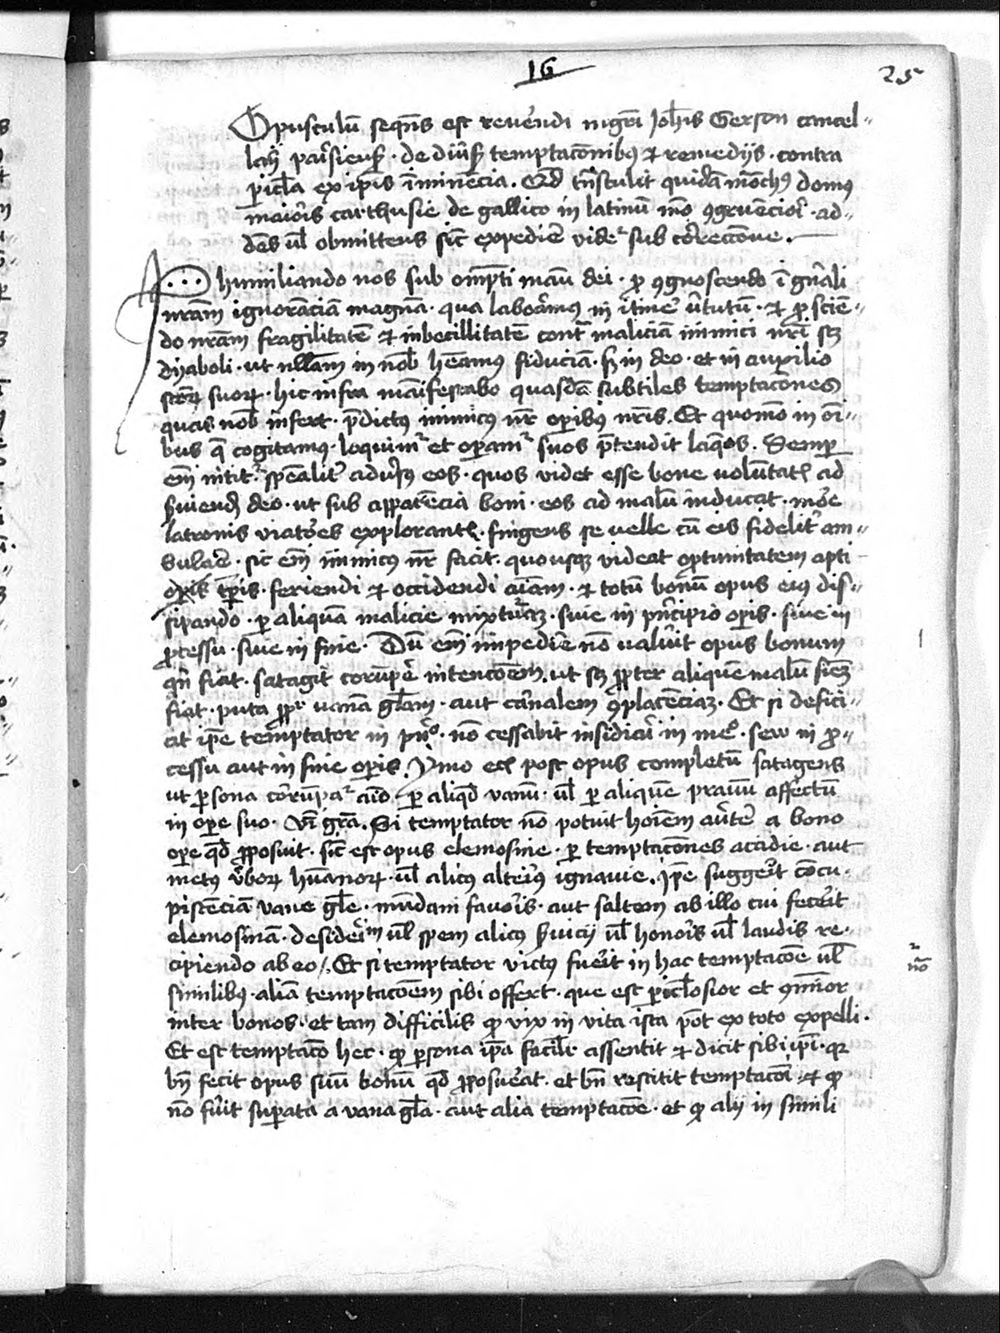 16
25
Opusculū seqn̄s est reuēndi mgr̄i Joh̄is Gerson cancel-
larij parisieñ · de diūs temptacōnibꝫ ⁊ remedijs · contra
picl̄a ex ip̄is īminēcia. Qd tn̄stulit quidā mōchꝰ domꝰ
maioris carthusie de gallico in latinū mō ꝯgruēciori · ad-
dēs ul̄ obmittens sic̄ expediē videt᷑ sub cōrectione.
Ad humiliando nos sub om̄pti manū dei · ⁊ ꝯgnoscendo ī gn̄ali
nr̄am ignorāciā magnā · qua laboramꝰ in itinē v̄tutū · ⁊ ꝓ sciē-
do nr̄am fragilitatē ⁊ inbecillitatē contͣ maliciā inimici nr̄i sꝫ
dyaboli · ut nll̄am in nob̄ hēamꝰ fiduciā · sꝫ in deo · et in auxilio
sctōꝝ suoꝝ · hic infra manifestabo quasdā subtiles temptacōnes
quas nob̄ infert · p̄dictꝰ inimicꝰ nr̄ opibꝫ nr̄is. Et quomō in oī-
bus q̄ cogitamꝰ · loquimͬ et opamͬ suos p̄tendit laq̄os. Semp
em̄ nititͬ sp̄ealitͬ adūsꝰ eos · quos videt esse bone volūtatꝭ ad
s̄uiendū deo · ut sub apparēcia boni · eos ad malū inducat · more
latronis viatōes explorantꝭ · fingens se uelle cū eis fidelitͬ am-
bulaē · sic em̄ inimicꝰ nr̄ facit · quousqꝫ videat optunitatem apti
tp̄is · feriendi ⁊ occidendi aīam · ⁊ totū bonū opus eiꝰ dis-
sipando · ꝑ aliquā malicie mixturāqꝫ · siue in pn̄cipio opis · siue in
ꝓcessu · siue in fine · Dū em̄ impediē nō ualūit opus bonum
qn̄ fiat · satagit corūpē intencōem · ut sꝫ ꝓpter aliquē malū finē
fiat · puta ꝓpͬ vanā gl̄am · aut carnalem ꝯplacēciā. Et si defici-
at ip̄e temptator in pnͦ · nō cessabit insidiari in meͦ · seu in ꝓ-
cessu aut in fine opis. Ymo eciā post opus completū satagens
ut ꝑsona corūpatͬ aīo · ꝑ aliqd vanū · ul̄ ꝑ aliquē prauū affectū
in ope suo · vꝫ gr̄a. Si temptator nō potuit hoīem auertē a bono
ope qd ꝓposuit · sic̄ est opus elemosine · ꝑ temptacōnes accidie · aut
metꝰ v̄boꝝ hūanoꝝ · ul̄ alicꝰ alteriꝰ ignauie. Ip̄e suggerit concu-
piscēciā vane gl̄e · mūdani fauoris · aut saltem ab illo cui fecerit
elemosinā · desideriū ul̄ spem alicꝰ s̄uicij ul̄ honoris ul̄ laudis re-
cipiendo ab eo. Et si temptator victꝰ fuerit in hac temptacōe ul̄
nō
similibꝫ · aliā temptacōem sibi offert · que est picl̄osior et ꝯmunior
inter bonos · et tam difficilis qꝫ vix in vita ista pōt ex toto expelli.
Et est temptaco hec · qꝫ ꝑsona ip̄a facil̄r assentit ⁊ dicit sibi ip̄i · qꝫ
bn̄ fecit opus suū bonū qd ꝓposuēat · et bn̄ restitit temptacoī · ⁊ qꝫ
nō fuit supata a vana gl̄a · aut alia temptacōe · et qꝫ alij in simili